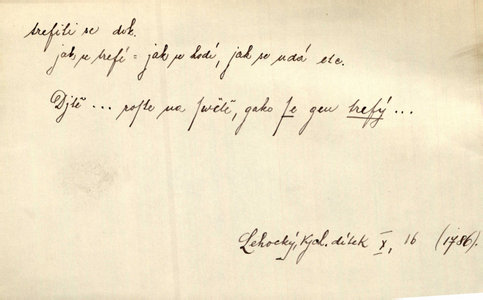 trefiti se dok.
jak se trefí = jak se hodí, jak se udá etc.
Djtě ... roste na swětě, gako se gen trefý ...
Lehocký, Kál. dítek X, 16 (1786).